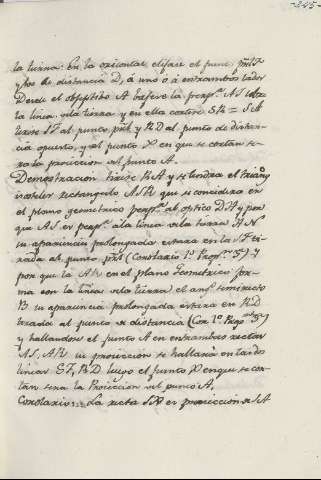 245
la tierra: En la orizontal elijase el punto prâl T
y los de distancia D, á uno o á entrambos lados
Desde el obgetibo A bajese la perpr. AS sobre
la linea dela tierra y en ella cortese SR = SA
tirese ST al punto prâl y RD al punto de distan-
cia opuesto, y el punto X en que se cortan se-
ra la proiecion del punto A.
Demostracion tirese RA y se tendra el triang.
isosteles rectangulo ASR que se considera en
el plano geometrico perpr. al optico DA y por
que AS es perpr. ála linea dela tierra
su aparencia prolongada estara en la ST ti-
rada al punto prâl (Corolario 1º Propn. 5) y
por que la AR en el plano Geometrico for-
ma con la linea dela tierra el angº semirecto
R su aparencia prolongada estara en RD
tirada al punto de distancia (Cor. 1º Propn 5)
y hallandose el punto A en entrambas rectas
AS, AR su proiección se hallará en las dos
lineas ST, RD luego el punto X en que se cor-
tan sera la Proiección del punto A.
Corolario: La recta SX es proieccion de SA